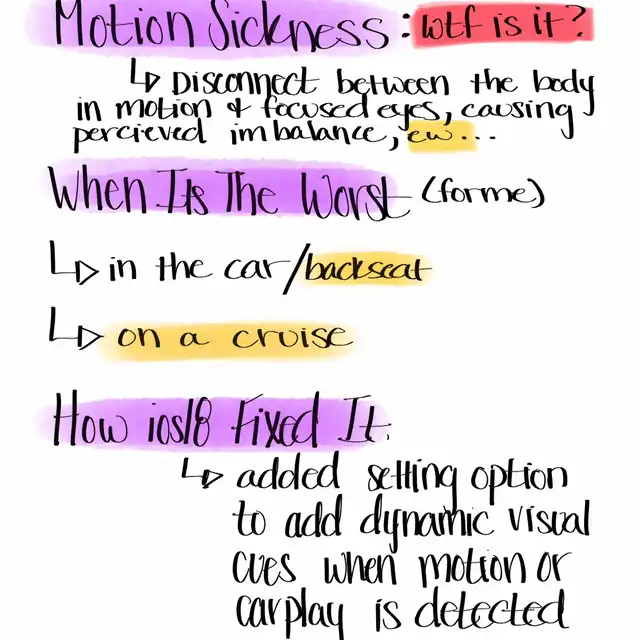 Motion Sickness: wtf is it?
↳ Disconnect between the body
in motion & focused eyes, causing
percieved imbalance, ew...
When Its The Worst (for me)
↳ in the car/backseat
↳ on a cruise
How ios18 Fixed It:
↳ added setting option
to add dynamic visual
cues when motion or
carplay is detected